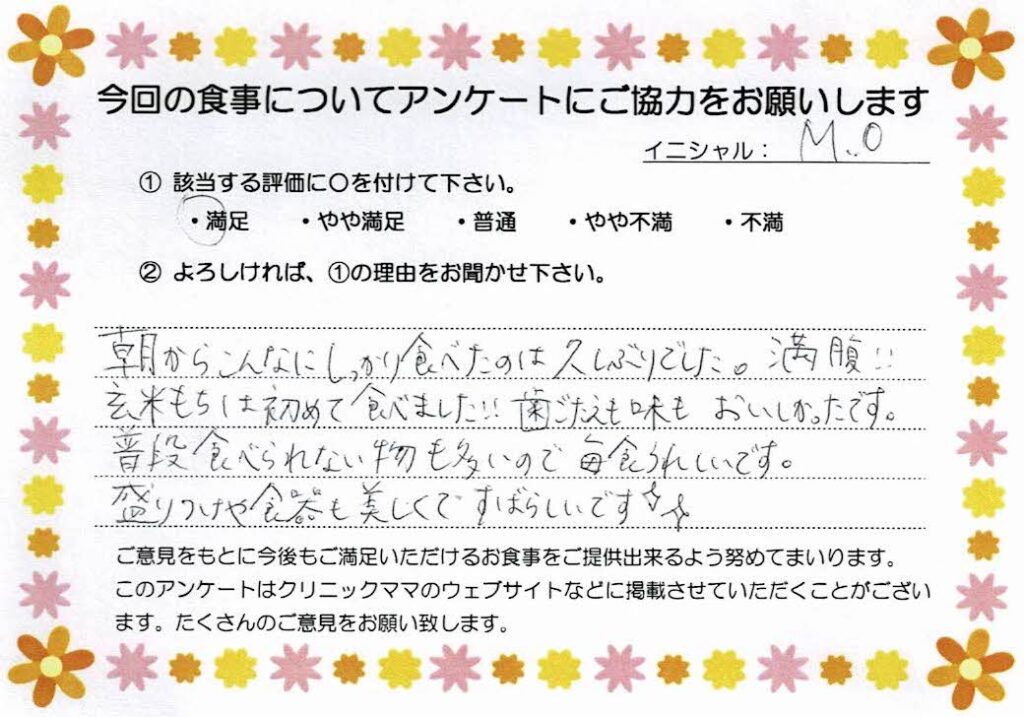 今回の食事についてアンケートにご協力をお願いします
イニシャル： M.O
① 該当する評価に〇を付けて下さい。
・満足 ・やや満足 ・普通 ・やや不満 ・不満
② よろしければ、①の理由をお聞かせ下さい。
朝からこんなにしっかり食べたのは久しぶりでした。満腹!!
玄米もちは初めて食べました!! 歯ごたえも味も おいしかったです。
普段食べられない物も多いので 毎食うれしいです。
盛りつけや食器も美しくて すばらしいです
ご意見をもとに今後もご満足いただけるお食事をご提供出来るよう努めてまいります。
このアンケートはクリニックママのウェブサイトなどに掲載させていただくことがござい
ます。たくさんのご意見をお願い致します。